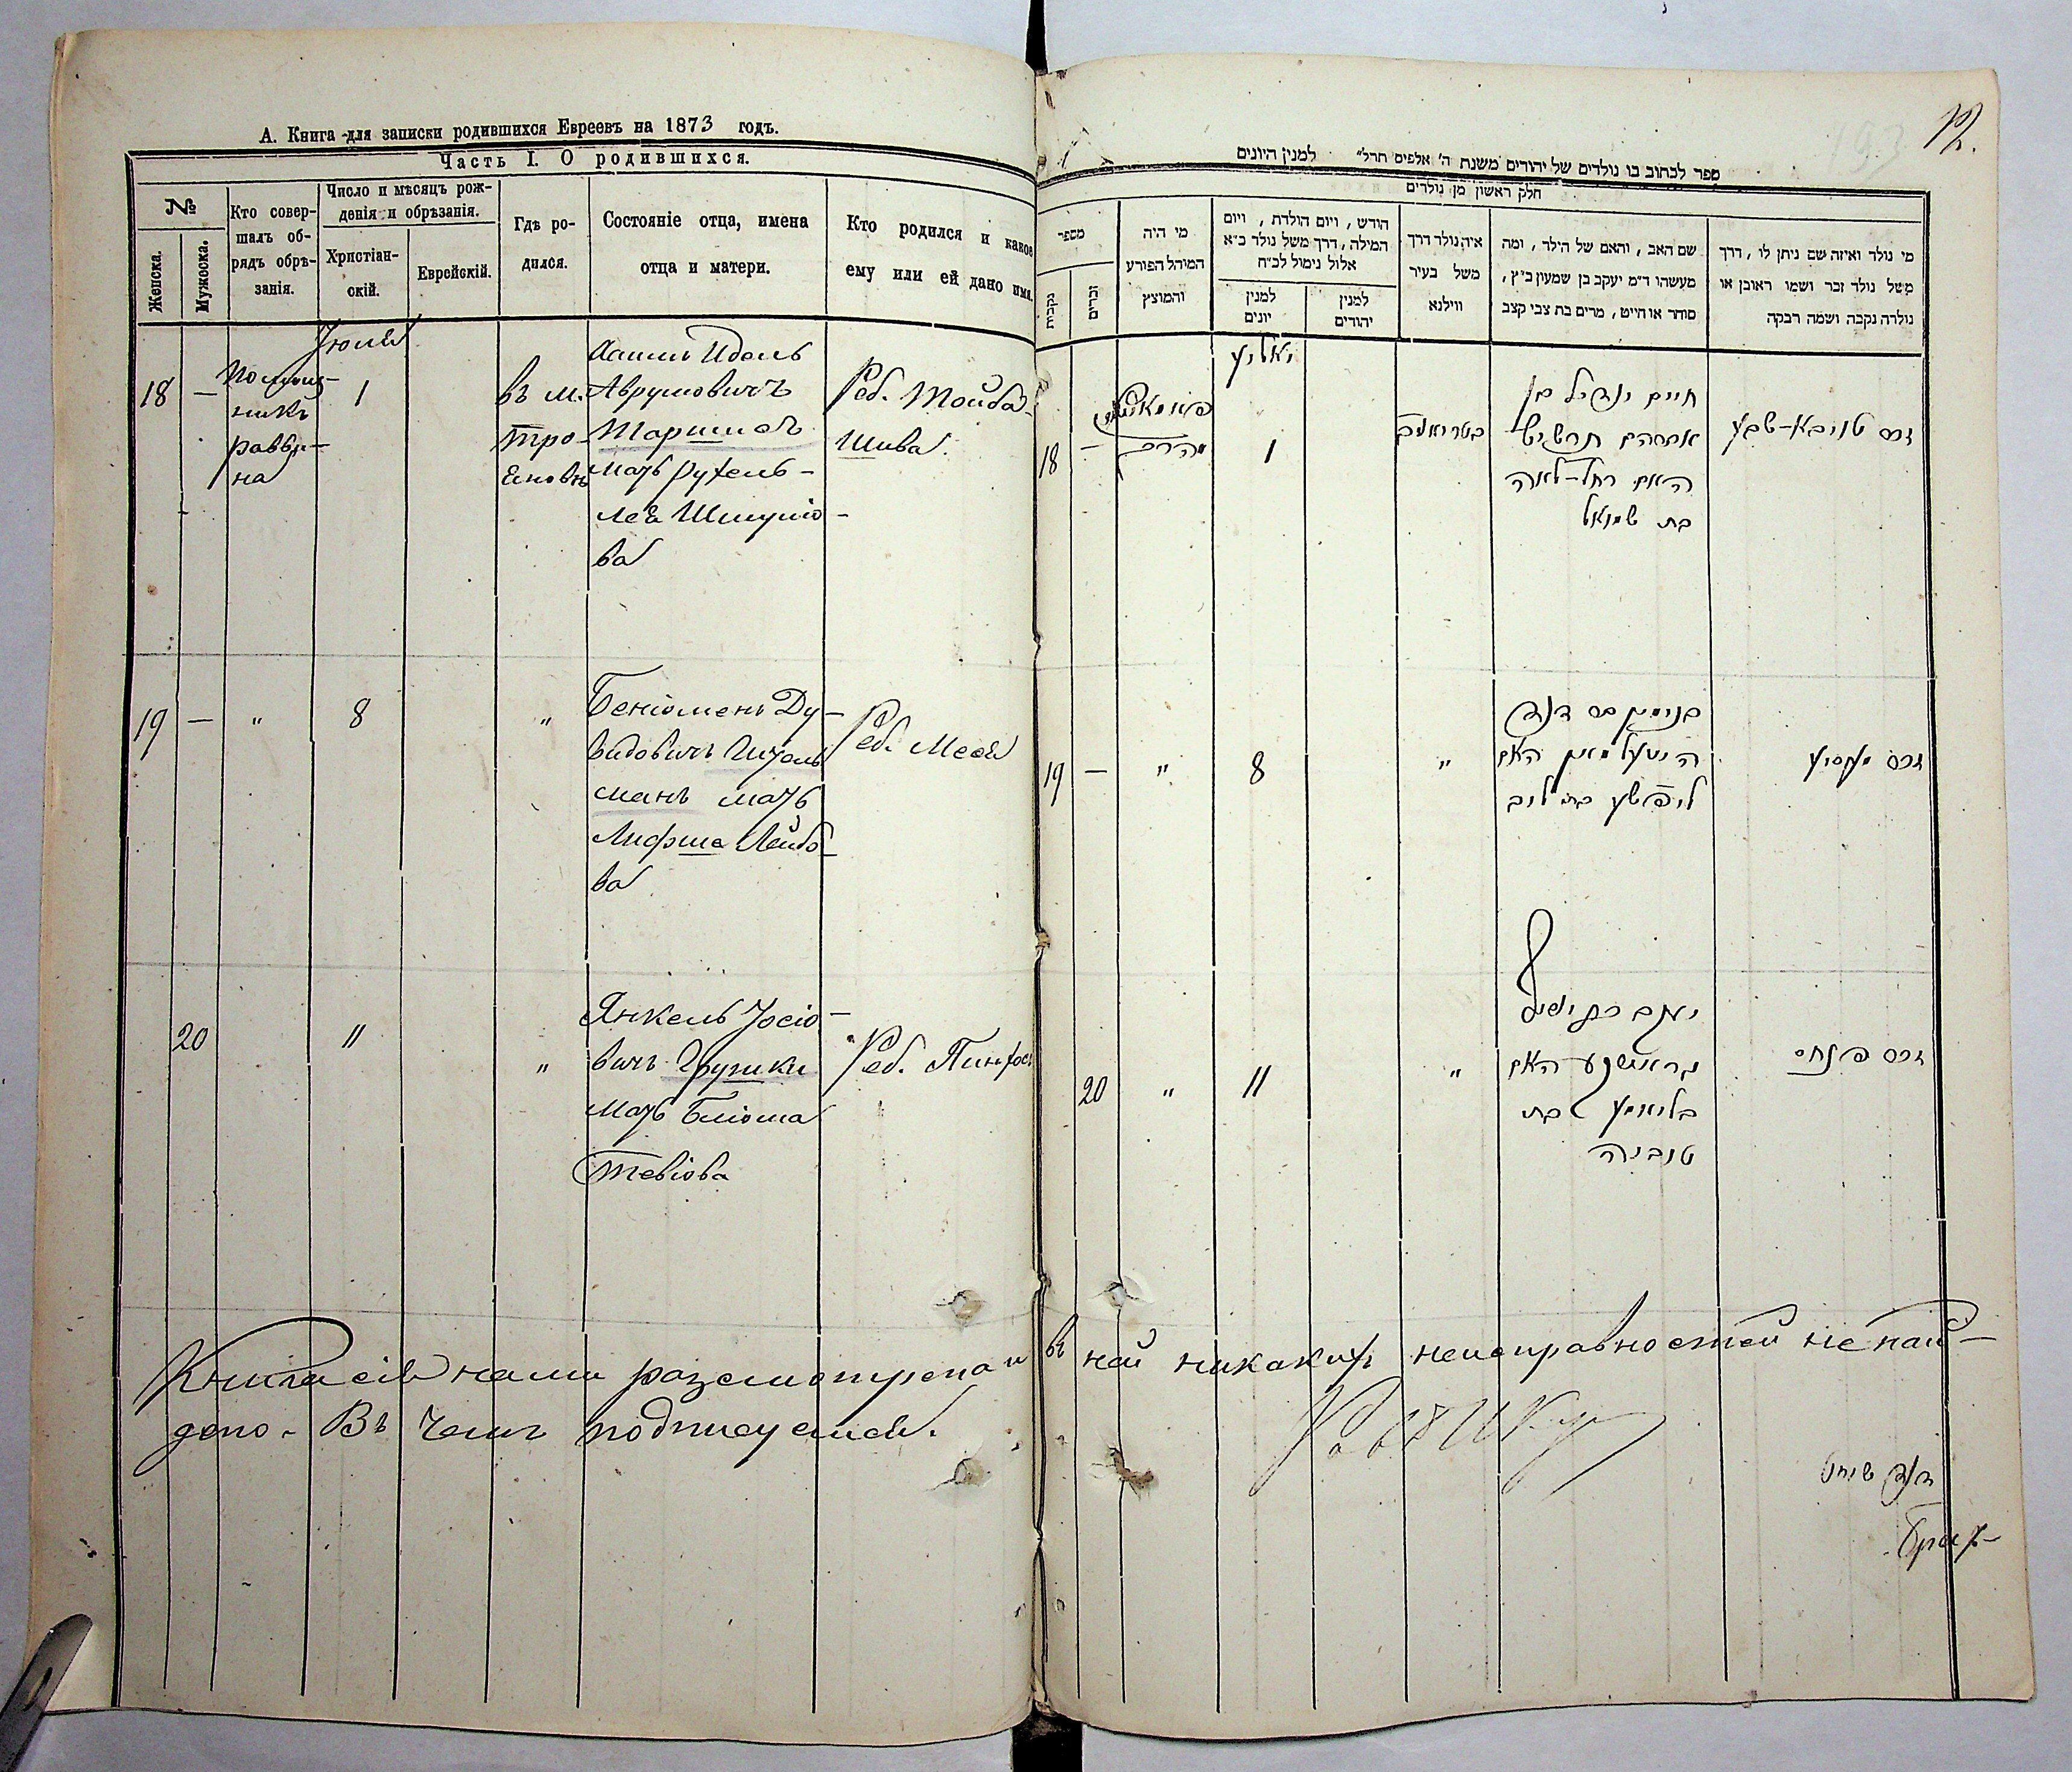 А. Книга для записки родившихся Евреевъ на 1873 годъ.
Часть I. О родившихся.
№
Женска.
Мужеска.
Кто совер-
шалъ об-
рядъ обрѣ-
занія.
Число и мѣсяцъ рож-
денія и обрѣзанія.
Христіан-
скій.
Еврейскій.
Гдѣ ро-
дился.
Состояніе отца, имена
отца и матери.
Кто родился и какое
ему или ей дано имя.
Іюль
18
—
Помощ-
никъ
равви-
на
1
въ м.
Тро
Хаимъ Идель
Аврумовичъ
мать Рухель-
Лея Шмуйло-
ва
Реб. Тойба-
Шива
19
—
"
8
"
Беніоменъ Ду-
видовичъ Гитель
манъ мать
Лифша Лейбо-
ва
Реб. Мееа
20
11
"
Янкель Іосіо-
вичъ
мать Бліома
Тевіова
Реб. Пинхос
12.
193
ספר לכתוב בו נולדים של יהודים משנת ה' אלפים תרל" למנין היונים
חלק ראשון מן נולדים
מספר
נקבות
זכרים
מי היה
המוהל הפורע
והמוצץ
חודש, ויום הולדת, ויום
המילה, דרך משל נולד כ"א
אלול נימול לכ"ח
למנין
יונים
למנין
יהודים
איה נולד דרך
משל בעיר
ווילנא
שם האב, והאם של הילד, ומה
מעשהו ד"מ יעקב בן שמעון כ"ץ,
סוחר או חייט, מרים בת צבי קצב
מי נולד ואיזה שם ניתן לו, דרך
משל נולד זכר ושמו ראובן או
נולדה נקבה ושמה רבקה
יאליץ
18
—
1
חיים יודיל בן
אברהם
האם רחל-לאה
בת שמואל
טויבא-שבע
19
—
"
8
"
בנימין בה דוד
היטעלמאן האם
ליפשע בת ליב
20
"
11
"
יעקב בן יוסף
האם
בליומע בת
טוביה
פנחס
Книга сія нами разсмотрена и въ ней никакихъ неисправностей не най-
дено. Въ чемъ подписуемся.
דוד שוחט